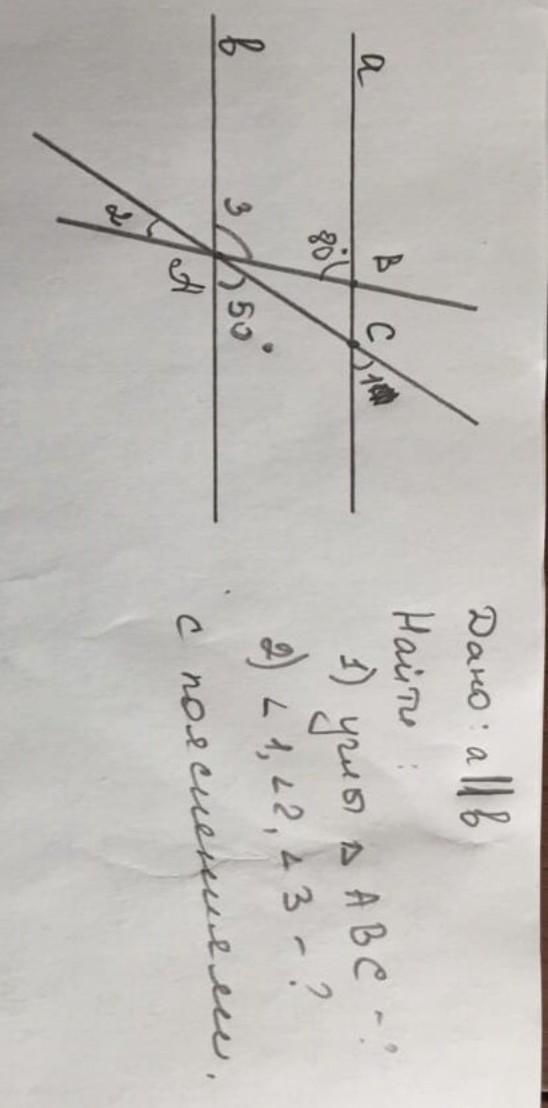 a
b
B
C
80°
1
3
50°
2
A
Дано: a || b
Найти:
1) углы △ ABC - ?
2) ∠1, ∠2, ∠3 - ?
с пояснениями.